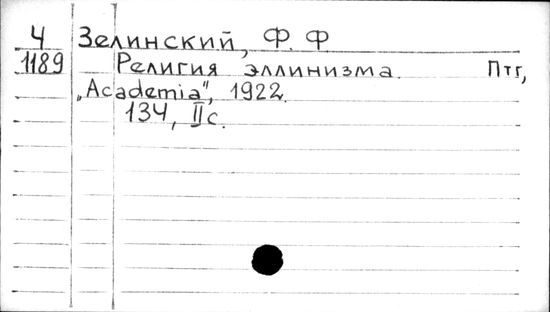 Ч Зелинский, Ф. Ф
1189 Религия эллинизма. Птг,
„Academia", 1922.
134, II с.